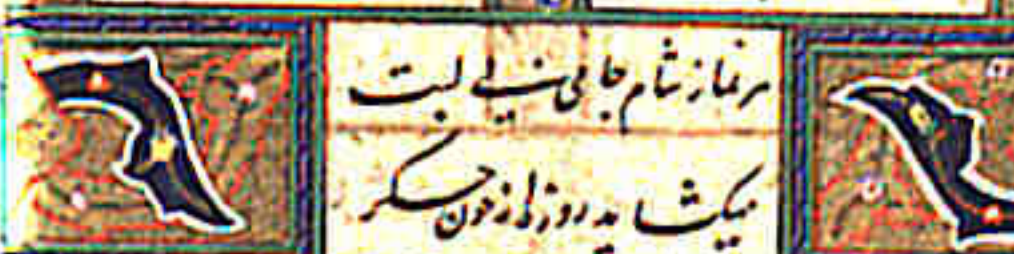 هر نماز شام جامی بی لبت
میگشاید روزه از خون جگر